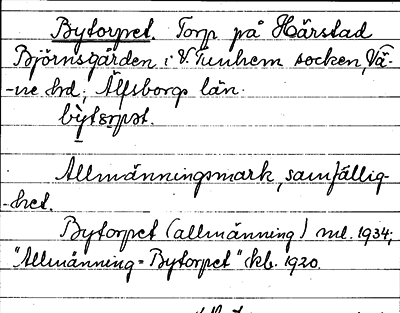 Bytorpet. Torp på Hårstad
Björnsgården i V. Tunhem socken, Vä-
-ne hd, Älfsborgs län.
bỳtɛrpət.
Allmänningsmark, samfällig-
-het.
Bytorpet (allmänning) ml. 1934;
"Allmänning = Bytorpet" kb. 1920.